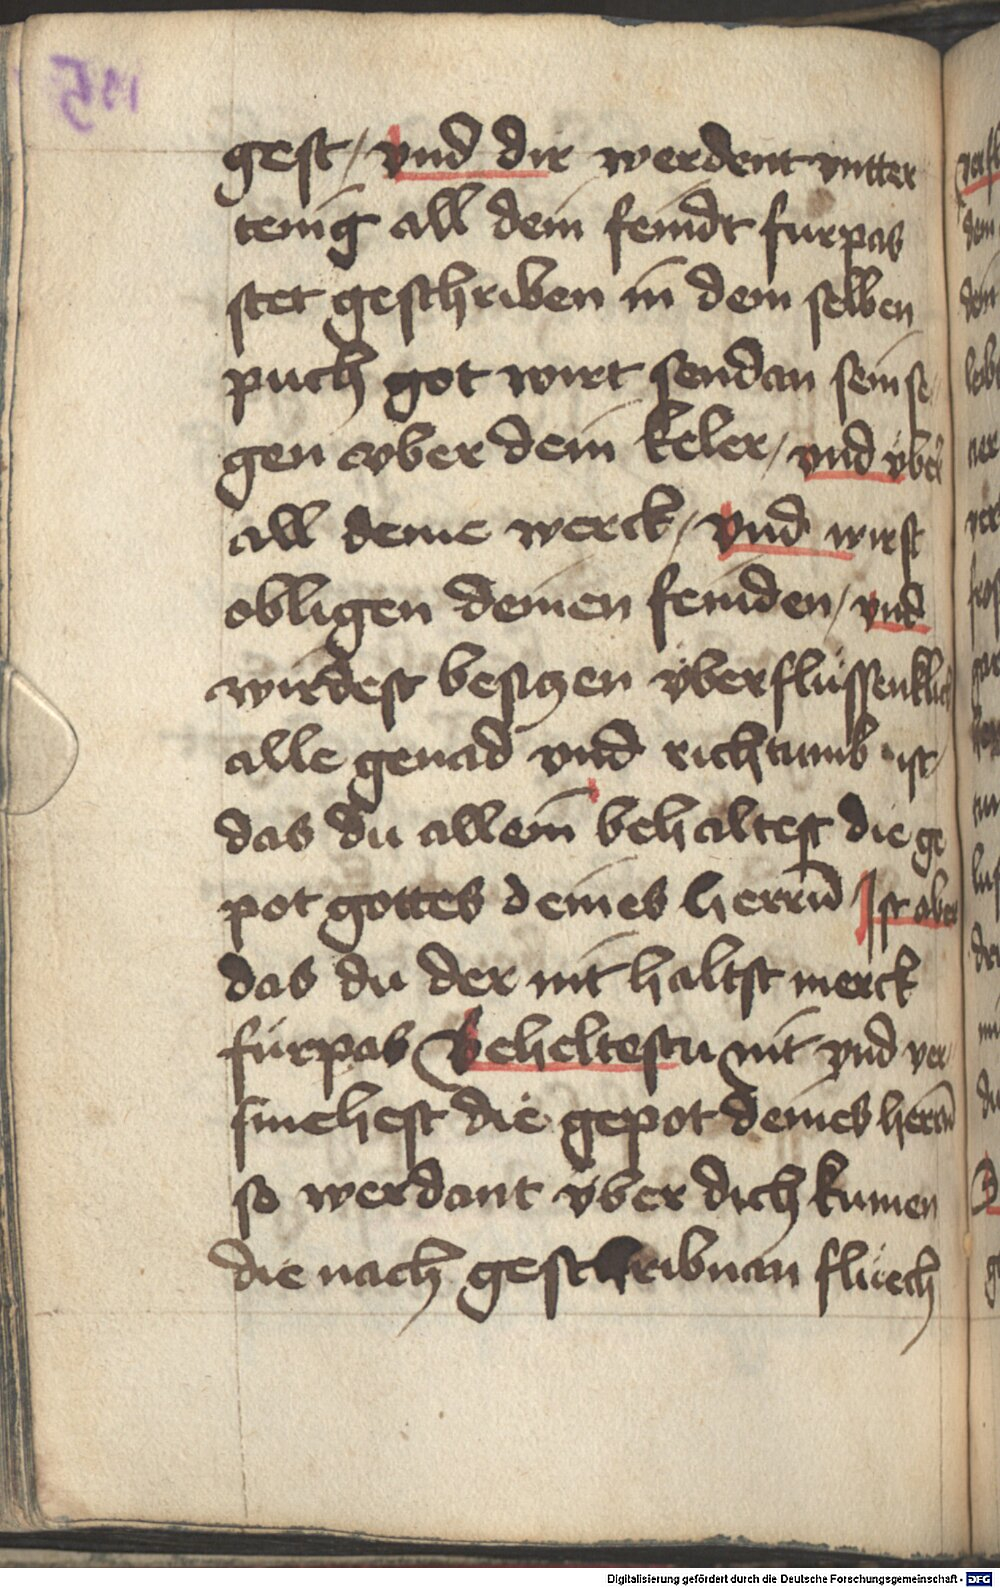 gest / vnd dir werdent vntter
tenig all dein feindt furpas
stet geschriben in dem selben
puch got wirt sendan sein se
gen vber dein keler / vnd vber
all deine werck / vnd wirst
obligen deinen feinden / vnd
wirdest besiczen vberflussenklich
alle genad vnd richtumb ist
das du allein behaltest die ge
pot gottes deines herrn̄ Ist aber
das du der nit haltst merck
fürpas Beheltestu nit vnd ver
smehest die gepot deines herrn̄
so werdant vber dich kumen
die nach geschribnan fluech
Digitalisierung gefördert durch die Deutsche Forschungsgemeinschaft - DFG